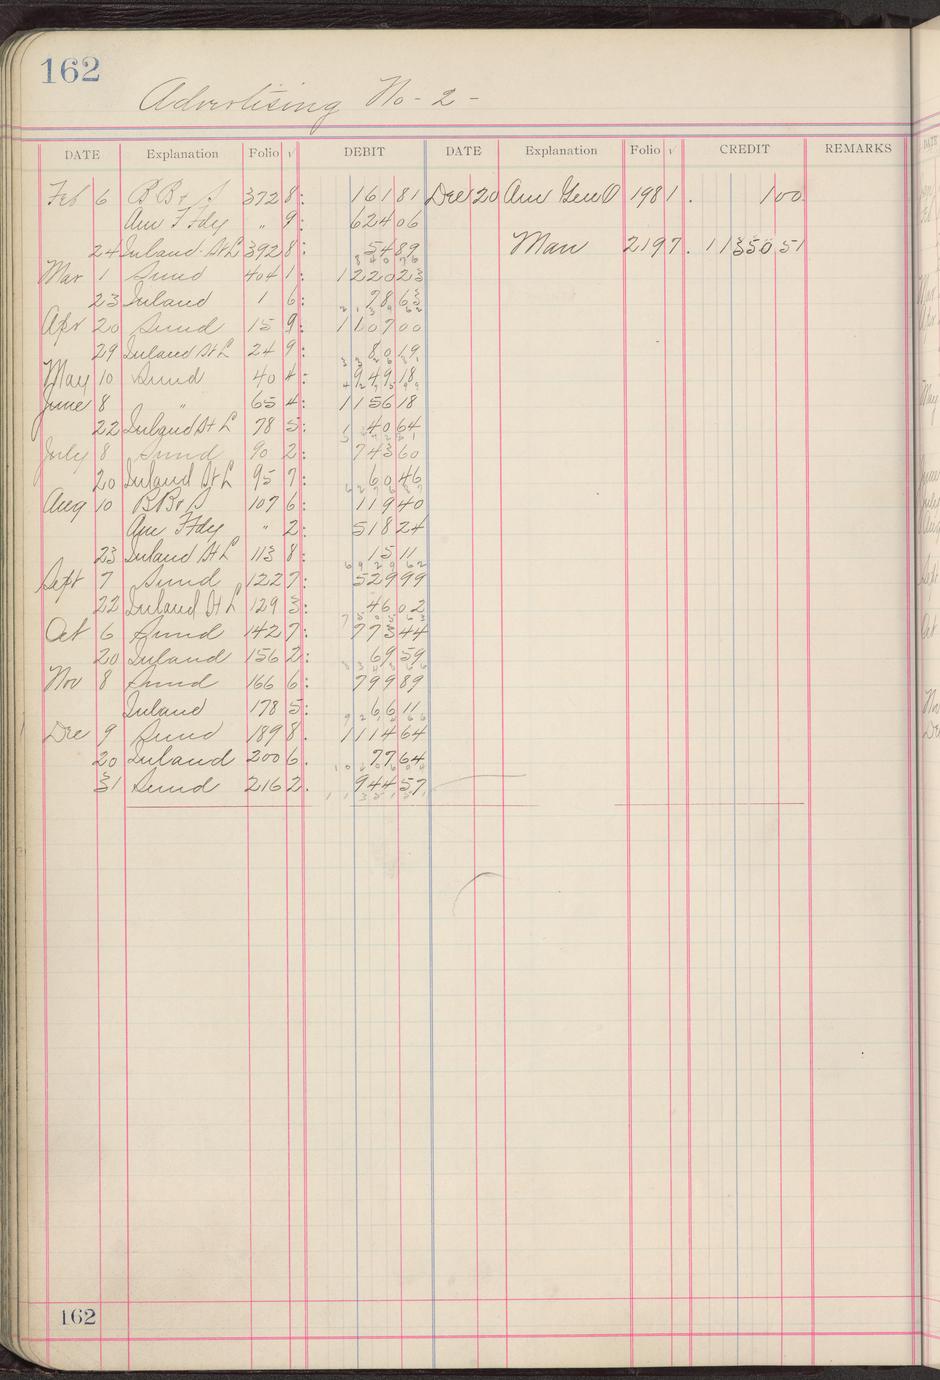 162
Advertising No-2-
DATE Explanation Folio √ DEBIT DATE Explanation Folio √ CREDIT REMARKS
Feb 6 B B & S 372 8: 161 81 Dec 20 Am Gen O 198 1. 1 00
Am T Fdy " 9: 624 06
24 Inland St L 392 8: 54 89 Man 219 7. 11350 51
Mar 1 Sund 404 1: 1220 23
23 Inland 1 6: 78 63
Apr 20 Sund 15 9: 1107 00
29 Inland St L 24 9: 80 19
May 10 Sund 40 4: 949 18
June 8 " 65 4: 1156 18
22 Inland St L 78 5: 40 64
July 8 Sund 90 2: 743 60
20 Inland St L 95 7: 60 46
Aug 10 B B & S 107 6: 119 40
Am T Fdy " 2: 518 24
23 Inland St L 113 8: 15 11
Sept 7 Sund 122 7: 529 99
22 Inland St L 129 3: 46 02
Oct 6 Sund 142 7: 773 44
20 Inland 156 2: 69 59
Nov 8 Sund 166 6: 799 89
Inland 178 5: 66 11
Dec 9 Sund 189 8. 1114 64
20 Inland 200 6. 77 64
31 Sund 216 2. 944 57
162